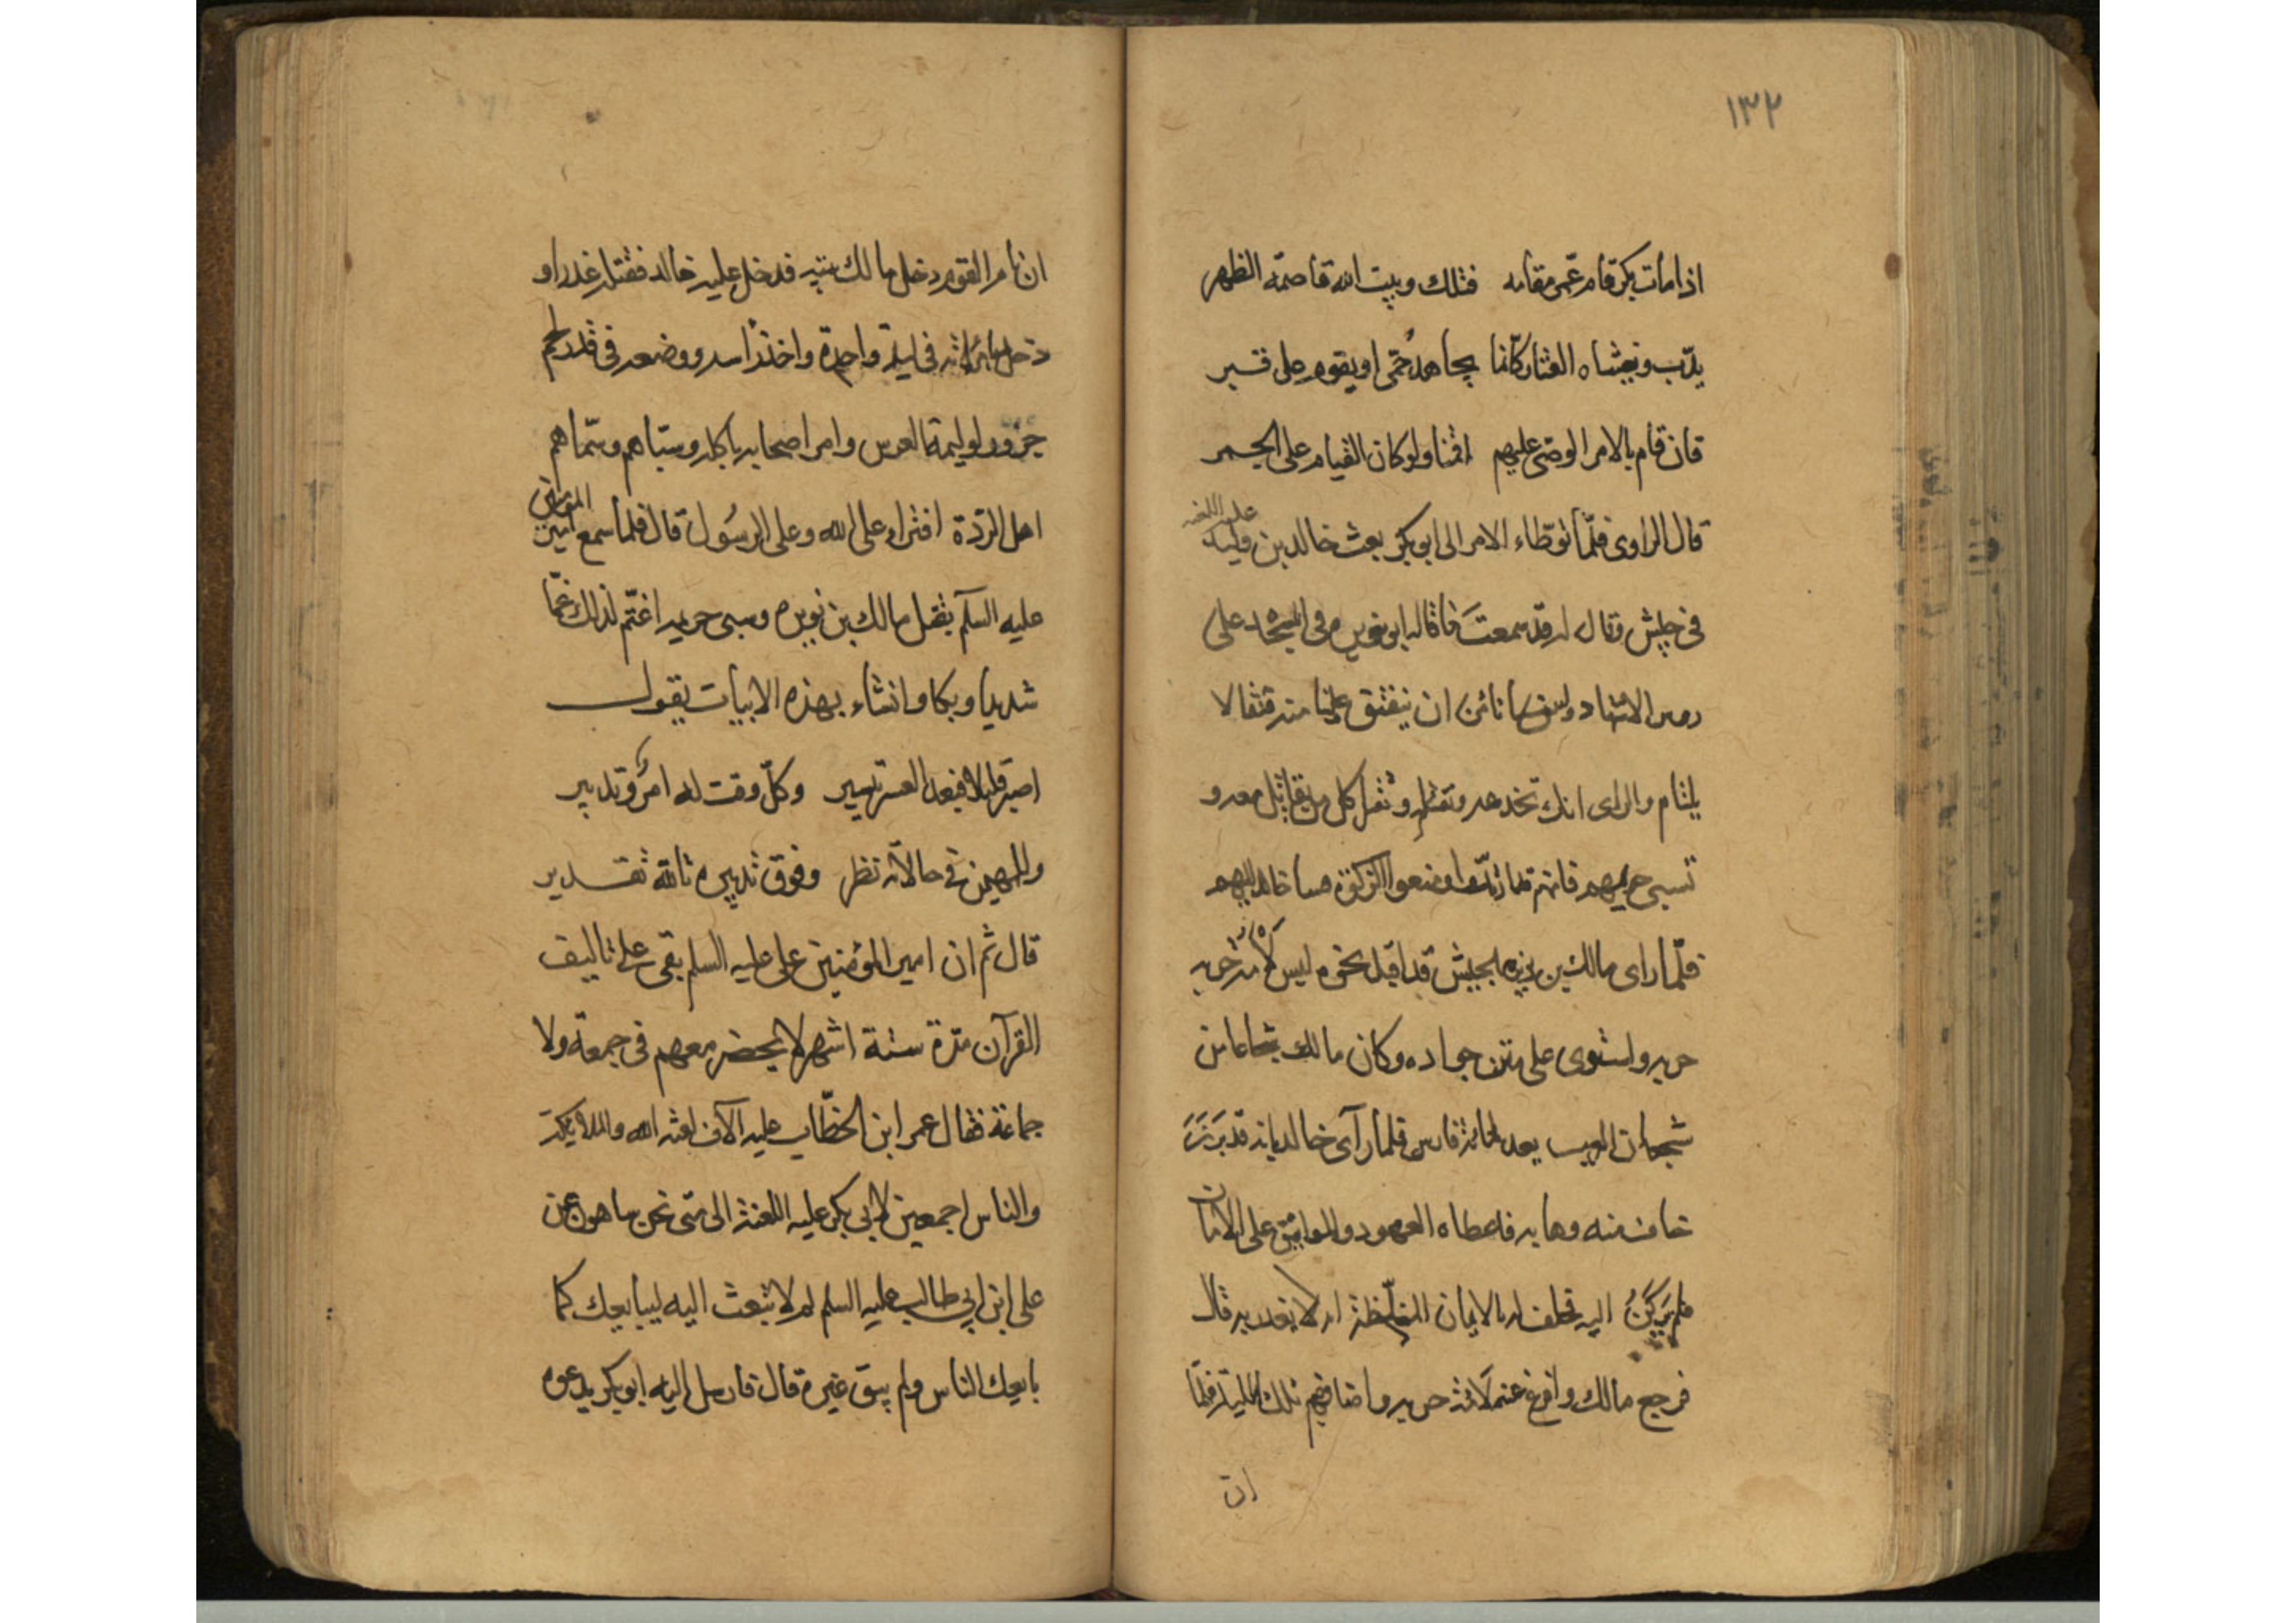 ١٣٢
اذا مات بكر قام عمر مقامه فتلك وبيت الله قاصمة الظهر
يدب ويغشاه العثار كانما يجاهد حتى او يقوم على قبر
فان قام بالامر الوصى عليهم اقمنا ولو كان القيام على الجمر
عليه اللعنه
قال الراوى فلما توطاء الامر الى ابو بكر بعث خالد بن وليد
فى جيش وقال له قد سمعت ما قاله ابن نويره فى المسجد على
روس الاشهاد ولسنا نأمن ان ينفتق علينا منه فتقا لا
يلتام والراى انك تخدعه وتقتله وتقتل كل من يقاتل معه و
تسبى حريمهم فانهم قد ارتدوا ومنعوا الزكوة فسار خالد اليهم
فلما راى مالك بن نويره الجيش قد اقبل نحوه ليس لامة
حربه واستوى على متن جواده وكان مالك شجاعا من
شجعان العرب يعد بمائة فارس فلما رآى خالد بانه قد برز
خاف منه وهابه فاعطاه العهود والمواثيق على الامان
فلم يركن اليه فحلف له بالايمان المغلظة انه لا يغدر به قال
فرجع مالك وافرغ عنه لامة حربه واضافهم تلك الليلة فلما
ان
ان نامر القوم دخل مالك بيته فدخل عليه خالد فقتله غدرا و
دخل بامرأته فى ليلة واحدة واخذ راسه ووضعه فى قدر لحم
جزور لوليمة العرس وامر اصحابه باكله وسباهم وسماهم
اهل الردة افتراء على الله وعلى الرسول قال فلما سمع امير المؤمنين
عليه السلم بقتل مالك بن نويره وسبى حريمه اغتم لذلك غما
شديدا وبكا وانشاء بهذه الابيات يقول
اصبر قليلا فبعد العسر تيسير وكل وقت له امر وتدبير
وللمهيمن فى حالاته نظر وفوق تدبيره تالله تقدير
قال ثم ان امير المؤمنين على عليه السلم بقى على تاليف
القرآن مدة ستة اشهر لا يحضر معهم فى جمعة ولا
جماعة فقال عمر ابن الخطاب عليه الآف لعثه الله والملايكه
والناس اجمعين لابى بكر عليه اللعنة الى متى نحن ساهون عن
على ابن ابى طالب عليه السلم لم لا تبعث اليه ليبايعك كما
بايعك الناس ولم يبق غيره قال فارسل اليه ابو بكر يدعوه